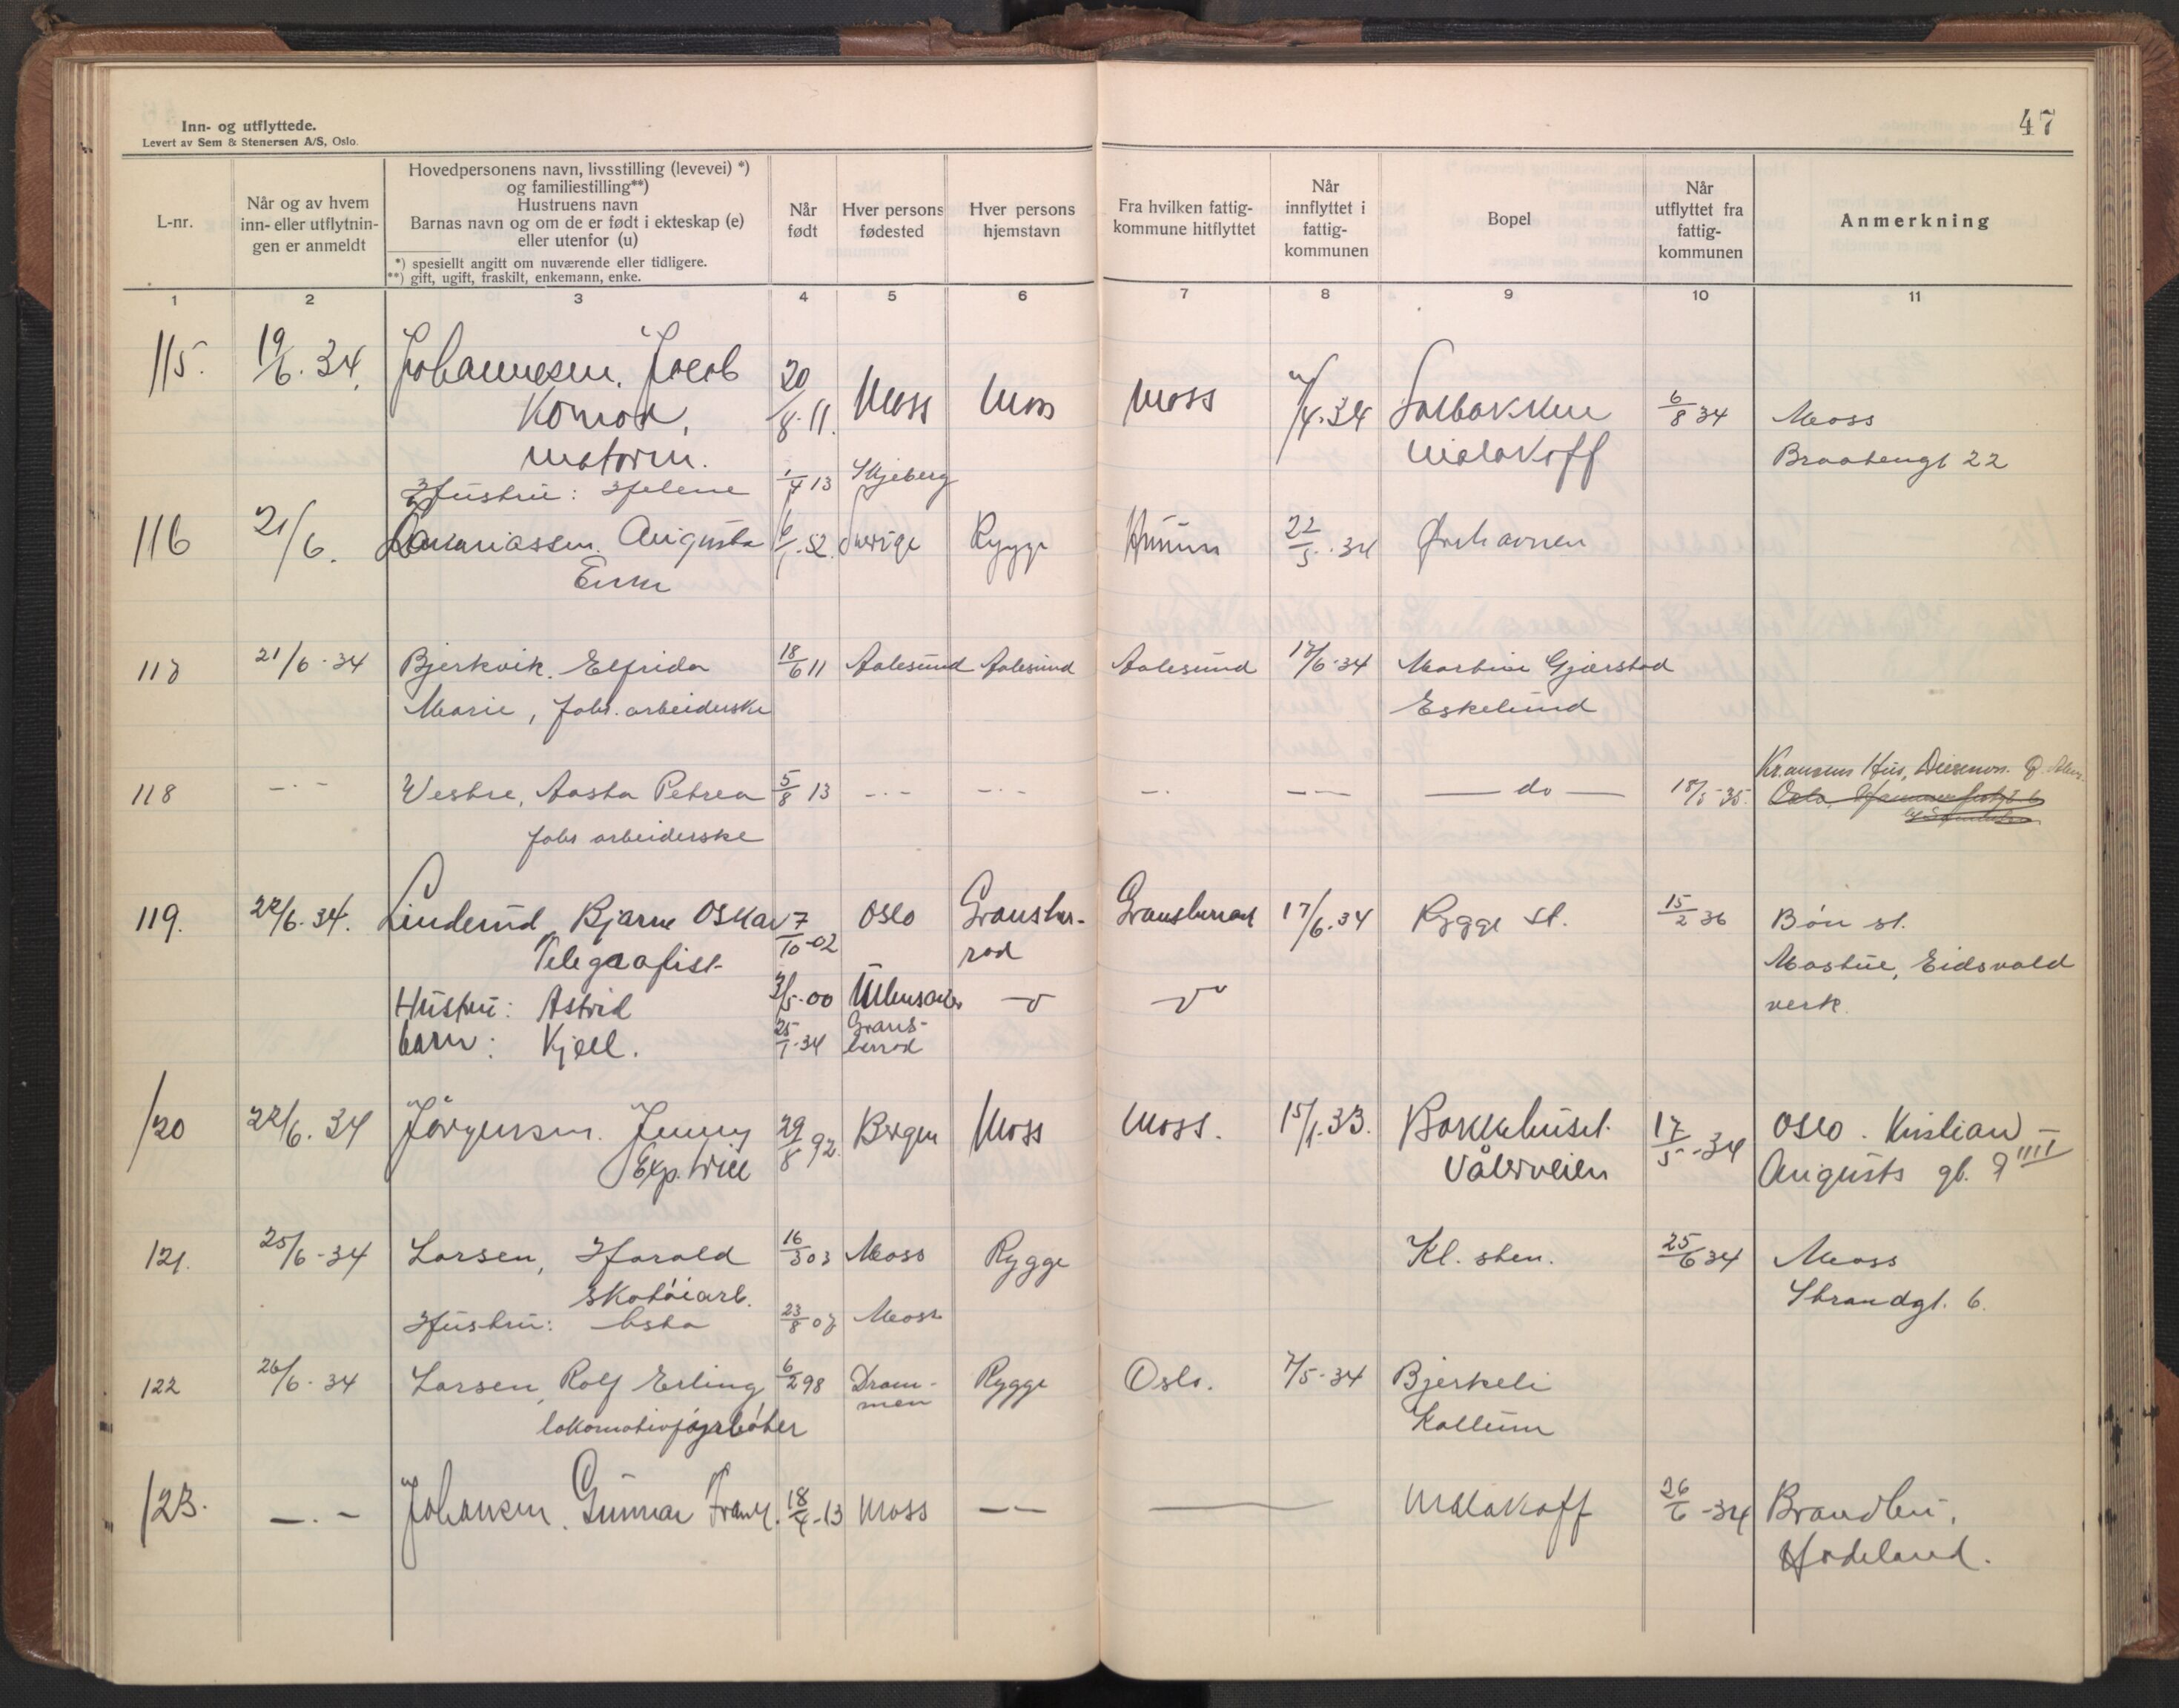 Inn- og utflyttede.
Levert av Sem & Stenersen A/S, Oslo.
47
L-nr.
Når og av hvem
inn- eller utflytnin-
gen er anmeldt
Hovedpersonens navn, livsstilling (levevei) *)
og familiestilling**)
Hustruens navn
Barnas navn og om de er født i ekteskap (e)
eller utenfor (u)
*) spesiellt angitt om nuværende eller tidligere.
**) gift, ugift, fraskilt, enkemann, enke.
Når
født
Hver persons
fødested
Hver persons
hjemstavn
Fra hvilken fattig-
kommune hitflyttet
Når
innflyttet i
fattig-
kommunen
Bopel
Når
utflyttet fra
fattig-
kommunen
Anmerkning
1 2 3 4 5 6 7 8 9 10 11
115. 19/6. 34. Johannesen. Jacob 20/8. 11. Moss Moss Moss /4. 34 Solbakken 6/8 34 Moss
Konrad, Malakoff Braatengt 22
Hustru: Helene 1/4 13 Skjeberg
116 21/6. Augusta 6/1. 52. Sverige Rygge 22/5. 34
Enke
117 21/6 - 34 Bjerkvik. Elfrida 18/6 11 Aalesund Aalesund Aalesund 17/6 - 34 Martine Gjærstad
Marie, fabr. arbeiderske Eskelund
118 - . - Vestre, Aasta Petrea 5/8 13 - . - - . - - . - - - do - 18/5 - 35. Hus,
fabr arbeiderske Oslo,
119. 22/6. 34. Linderud, Bjarne Oskar 7/10 - 02 Oslo Gransher- Gransherrad 17/6. 34 Rygge st. 15/2 36 Bøn st.
Telegrafist rad Mostue, Eidsvold
Hustru: Astrid 3/5 - 00 Ullensaker verk.
barn: Kjell. 25/1 - 34 Grans-
herrad
120 22/6. 34 Jörgensen. Jenny 29/8 92. Bergen Moss Moss. 15/1. 33. Bakkehuset. 17/5 - 34 Oslo. Kristian -
Exp. trise Vålerveien Augusts gt. 9 IIII
121. 25/6 - 34 Larsen, Harald 16/3 03 Moss Rygge Kl. sten. 25/6 34 Moss
skotöiarb. Strandgt. 6.
Hustru: Asta 23/8 07 Moss
122 26/6 - 34 Larsen, Rolf Erling 6/2 98 Dram- Rygge Oslo. 7/5 - 34 Bjerkeli
men
lokomotivfyrbøter Kallum
123. - . - Johansen. Gunnar Frank. 18/4 - 13 Moss - - - Malakoff 26/6 - 34 Brandbu,
Hadeland.